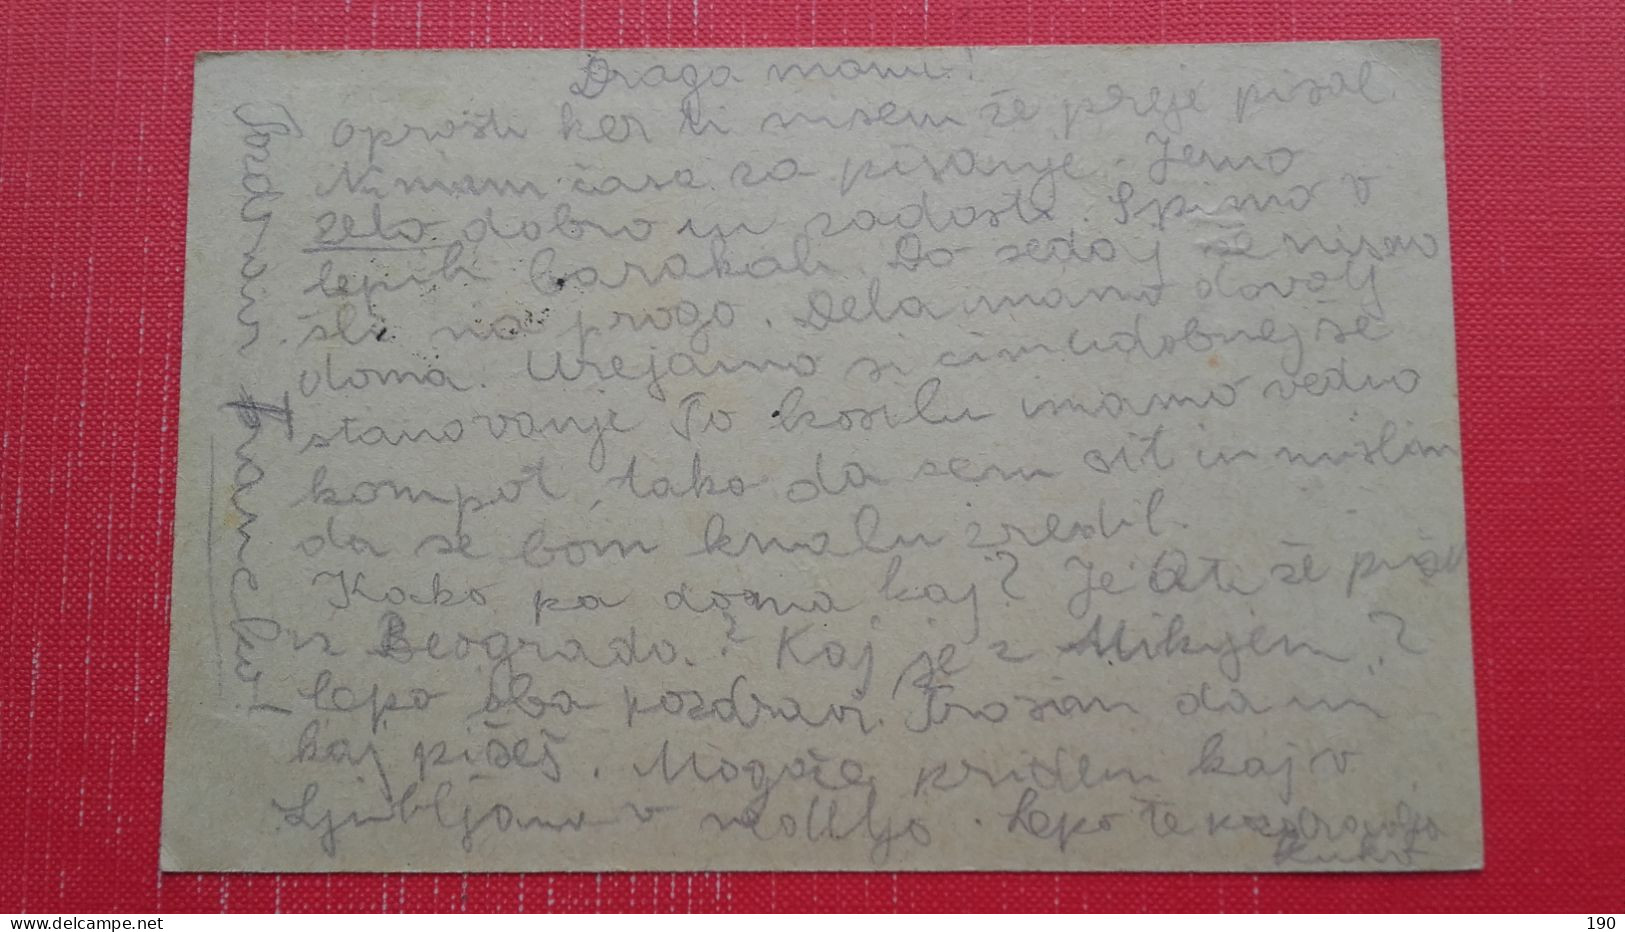 Draga mami!
oprosti ker ti nisem že preje pisal.
Nimam časa za pisanje. Jemo
zelo dobro in zadosti. Spimo v
lepih barakah. Do sedaj še nismo
šli na progo. Dela imamo dovolj
doma. Urejamo si čim udobnejše
stanovanje. Po kosilu imamo vedno
kompot, tako da sem sit in mislim
da se bom kmalu zredil.
Kako pa doma kaj? Je Ati že pisal
iz Beograda? Kaj je z Mikijem?
lepo oba pozdravi. Prosim da mi
kaj pišeš. Mogoče pridem kaj v
Ljubljano v nedeljo. Lepo te pozdravlja
Pozdravi
delcampe.net
190